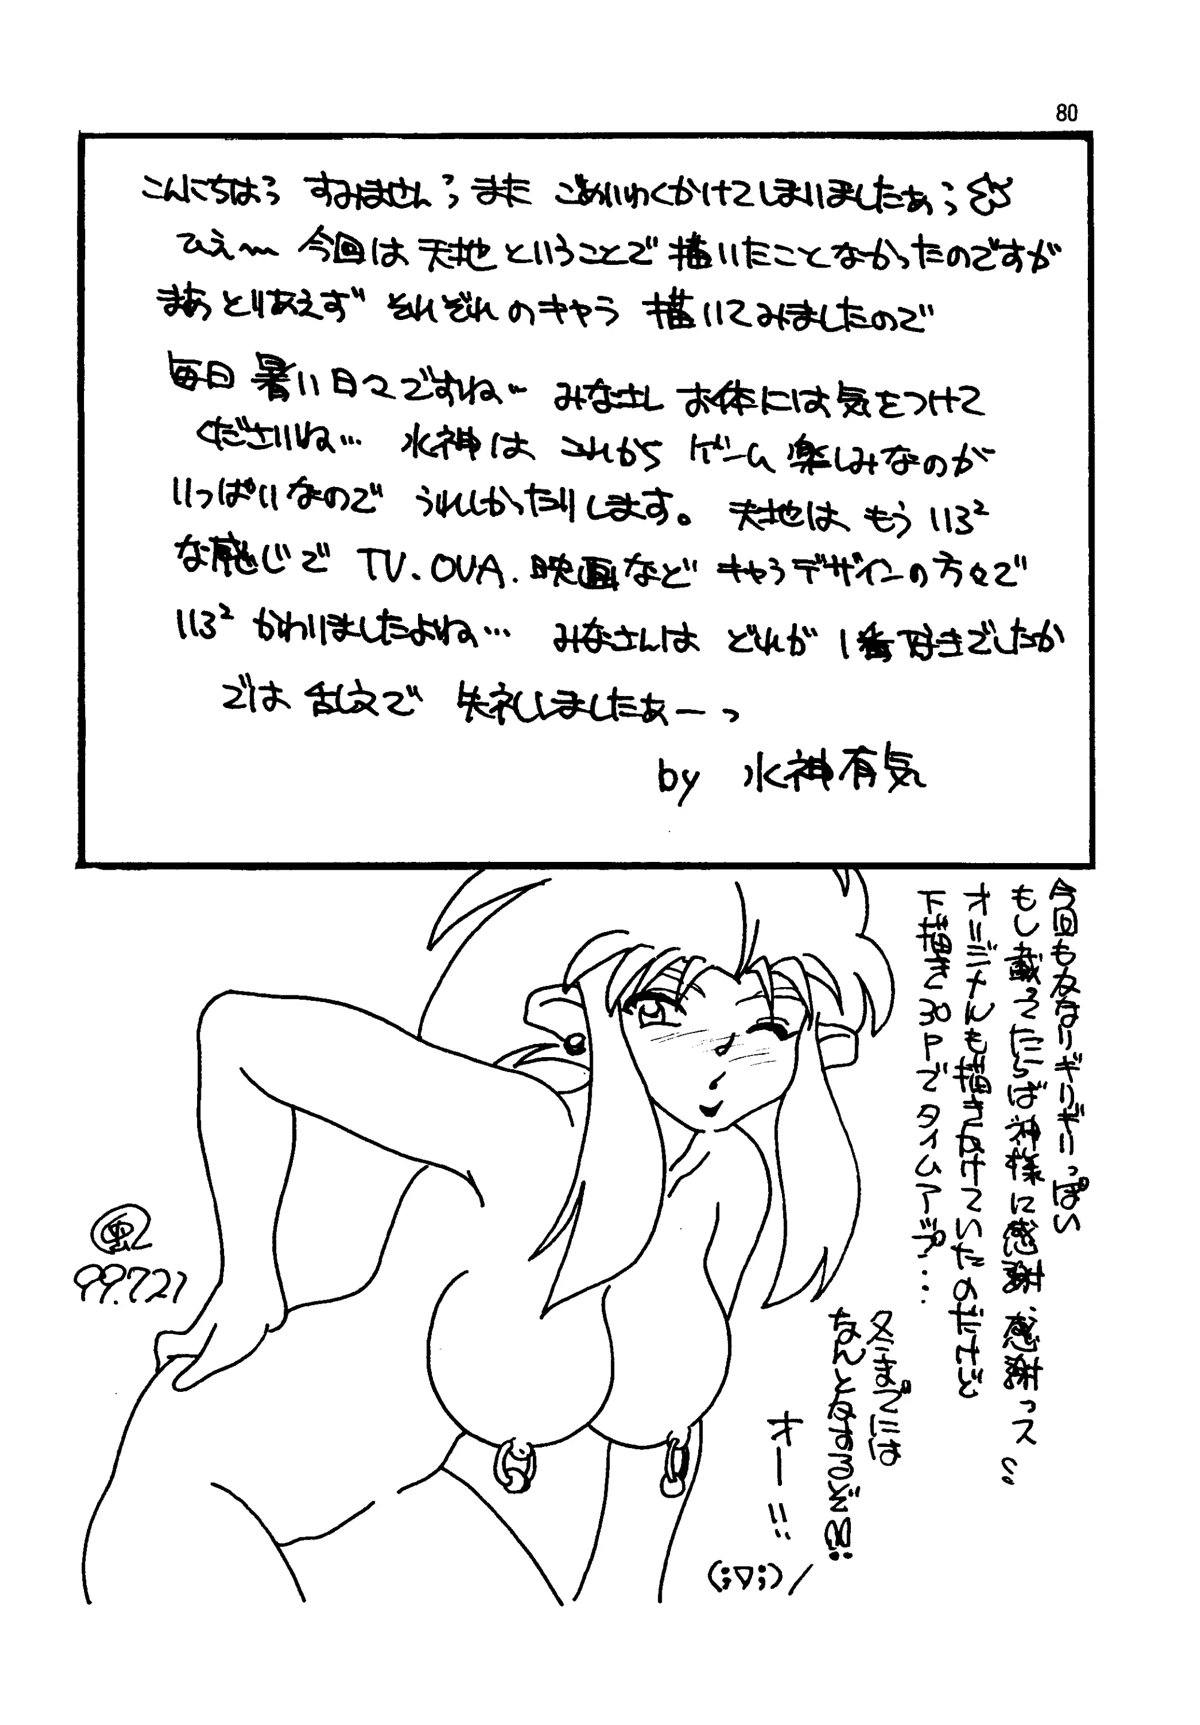 80
こんにちはっ すみませんっ また ごめいわくかけてしまいましたぁっ
ひえ〜 今回は 天地 ということで 描いたことなかったのですが
まあ とりあえず それぞれのキャラ 描いてみましたので
毎日 暑い日々ですね… みなさん お体には気をつけて
くださいね… 水神は これから ゲーム 楽しみなのが
いっぱいなので うれしかったりします。 天地は、もう いろ²
な感じで TV.OVA.映画など キャラデザインの方々で
いろ² かわりましたよね… みなさんは どれが 1番好きでしたか
では 乱文で 失礼しましたぁーっ
by 水神有気
今回も
なりギリギリっぽい
もし載ってたらば神様に感謝、感謝っス
オリジナルも描きかけていたのだけど
下描き30Pでタイムアップ…
冬までには
なんとかするぞ!!
オー!!
(;▽;)/
99.7.21